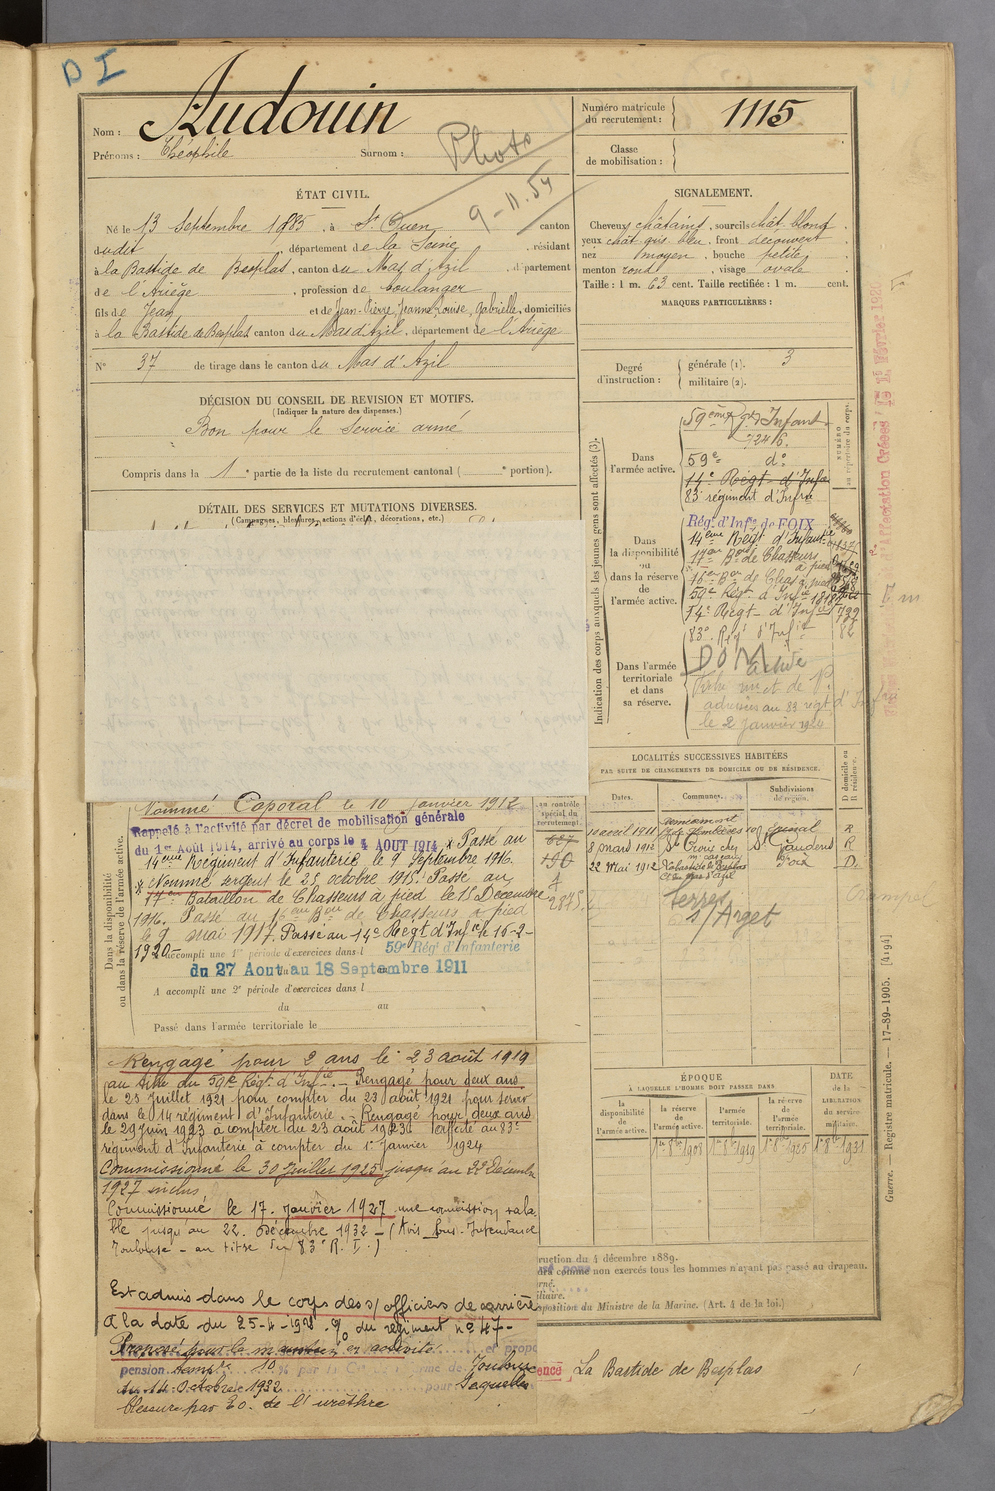 D I
Nom : Audouin
Prénoms : Théophile Surnom :
Photo
9-11-54
Numéro matricule du recrutement : 1115
Classe de mobilisation :
ÉTAT CIVIL.
Né le 13 Septembre 1885, à St Ouen canton
dudit, département de la Seine, résidant
à la Bastide de Besplas, canton du Mas d'Azil, département
de l'Ariège, profession de boulanger
fils de Jean et de Jean-Pierre, Jeanne, Louise, Gabrielle, domiciliés
à la Bastide de Besplas canton du Mas d'Azil, département de l'Ariège
N° 37 de tirage dans le canton du Mas d'Azil
SIGNALEMENT.
Cheveux châtains, sourcils chât blond,
yeux chât gris bleu, front découvert,
nez moyen, bouche petite,
menton rond, visage ovale.
Taille : 1 m. 63 cent. Taille rectifiée : 1 m. cent.
MARQUES PARTICULIÈRES :
Degré d'instruction : générale (1). 3
militaire (2).
DÉCISION DU CONSEIL DE REVISION ET MOTIFS.
(Indiquer la nature des dispenses.)
Bon pour le Service armé
Compris dans la 1e partie de la liste du recrutement cantonal ( e portion).
DÉTAIL DES SERVICES ET MUTATIONS DIVERSES.
(Campagnes, blessures, actions d'éclat, décorations, etc.)
Indication des corps auxquels les jeunes gens sont affectés (3).
NUMÉRO au répertoire du corps.
Dans l'armée active.
59ème Rgt Infant
59e do
14e Régt d'Infie
83e régiment d'Infie
Dans la disponibilité ou dans la réserve de l'armée active.
Rég. d'Infie de FOIX
14ème Régt d'Infantie
17ème Bon de Chasseurs à pied
16ème Bon de Chas à pied
59e Régt d'Infie
14e Régt d'Infie
83e Régt d'Infie
Dans l'armée territoriale et dans sa réserve.
DOM active
admises au 83 régt d'Infie
le 2 janvier 1924
Nommé Caporal le 10 Janvier 1912
Rappelé à l'activité par décret de mobilisation générale
du 1er Août 1914, arrivé au corps le 4 AOUT 1914 * Passé au
14ème Régiment d'Infanterie le 9 Septembre 1916.
* Nommé sergent le 25 octobre 1915. Passé au
17ème Bataillon de Chasseurs à pied le 15 Décembre
1916. Passé au 16ème Bon de Chasseurs à pied
le 9 mai 1917. Passé au 14e Régt d'Infie le 16-2-
1920
A accompli une 1re période d'exercices dans l 59e Rég. d'Infanterie
du 27 Aout au 18 Septembre 1911
A accompli une 2e période d'exercices dans l
du au
Passé dans l'armée territoriale le
Dans la disponibilité ou dans la réserve de l'armée active.
Au contrôle spécial du recrutement.
687
190
LOCALITÉS SUCCESSIVES HABITÉES
PAR SUITE DE CHANGEMENTS DE DOMICILE OU DE RÉSIDENCE.
Dates. Communes. Subdivisions de région. D domicile ou R résidence.
10 avril 1911 Epinal R
8 mars 1912 Ste Croix St Gaudens R
22 Mai 1912 La bastide de Besplas Foix D.
Serres s/Arget
ÉPOQUE
À LAQUELLE L'HOMME DOIT PASSER DANS
la disponibilité de l'armée active.
la réserve de l'armée active.
l'armée territoriale.
la réserve de l'armée territoriale.
DATE de la LIBÉRATION du service militaire.
1er 8bre 1908 1er 8bre 1919 1er 8bre 1925 1er 8bre 1931
Guerre. — Registre matricule. — 17-89-1905. [4194]
Rengagé pour 2 ans le 23 août 1919
au titre du 59e Régt d'Infie. — Rengagé pour deux ans
le 23 Juillet 1921 pour compter du 23 août 1921 pour servir
dans le 14 régiment d'Infanterie. - Rengagé pour deux ans
le 29 juin 1923 à compter du 23 août 1923. Affecté au 83e
régiment d'Infanterie à compter du 1er Janvier 1924
Commissionné le 30 Juillet 1925 jusqu'au 22 Décembre
1927 inclus
Commissionné le 17 janvier 1927 une commission vala-
ble jusqu'au 22 Décembre 1932 - (Avis Sous-Intendance
Toulouse - au titre du 83e R. I.)
Est admis dans le corps des s/officiers de carrière
A la date du 25-4-1928. %o du régiment n° 47-
Proposé pour le maintien en activité
pension 10 % Toulouse
du 14 Octobre 1932 pour Séquelles
blessure par Eo. de l'urèthre
ruction du 4 décembre 1889.
comme non exercés tous les hommes n'ayant pas passé au drapeau.
position du Ministre de la Marine. (Art. 4 de la loi.)
La Bastide de Besplas